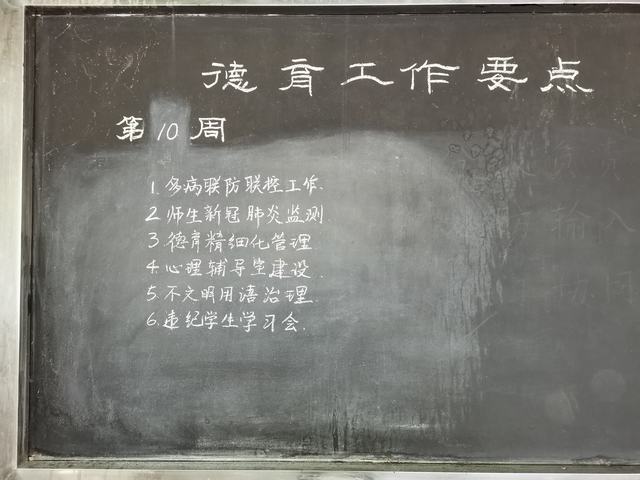 德育工作要点
第10周
1.多病联防联控工作.
2.师生新冠肺炎监测
3.德育精细化管理
4.心理辅导室建设.
5.不文明用语治理.
6.违纪学生学习会.